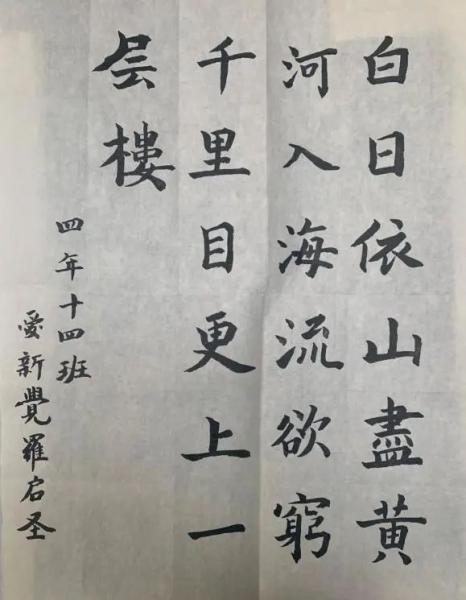 白日依山盡黄
河入海流欲窮
千里目更上一
层樓
四年十四班
愛新覺羅启圣